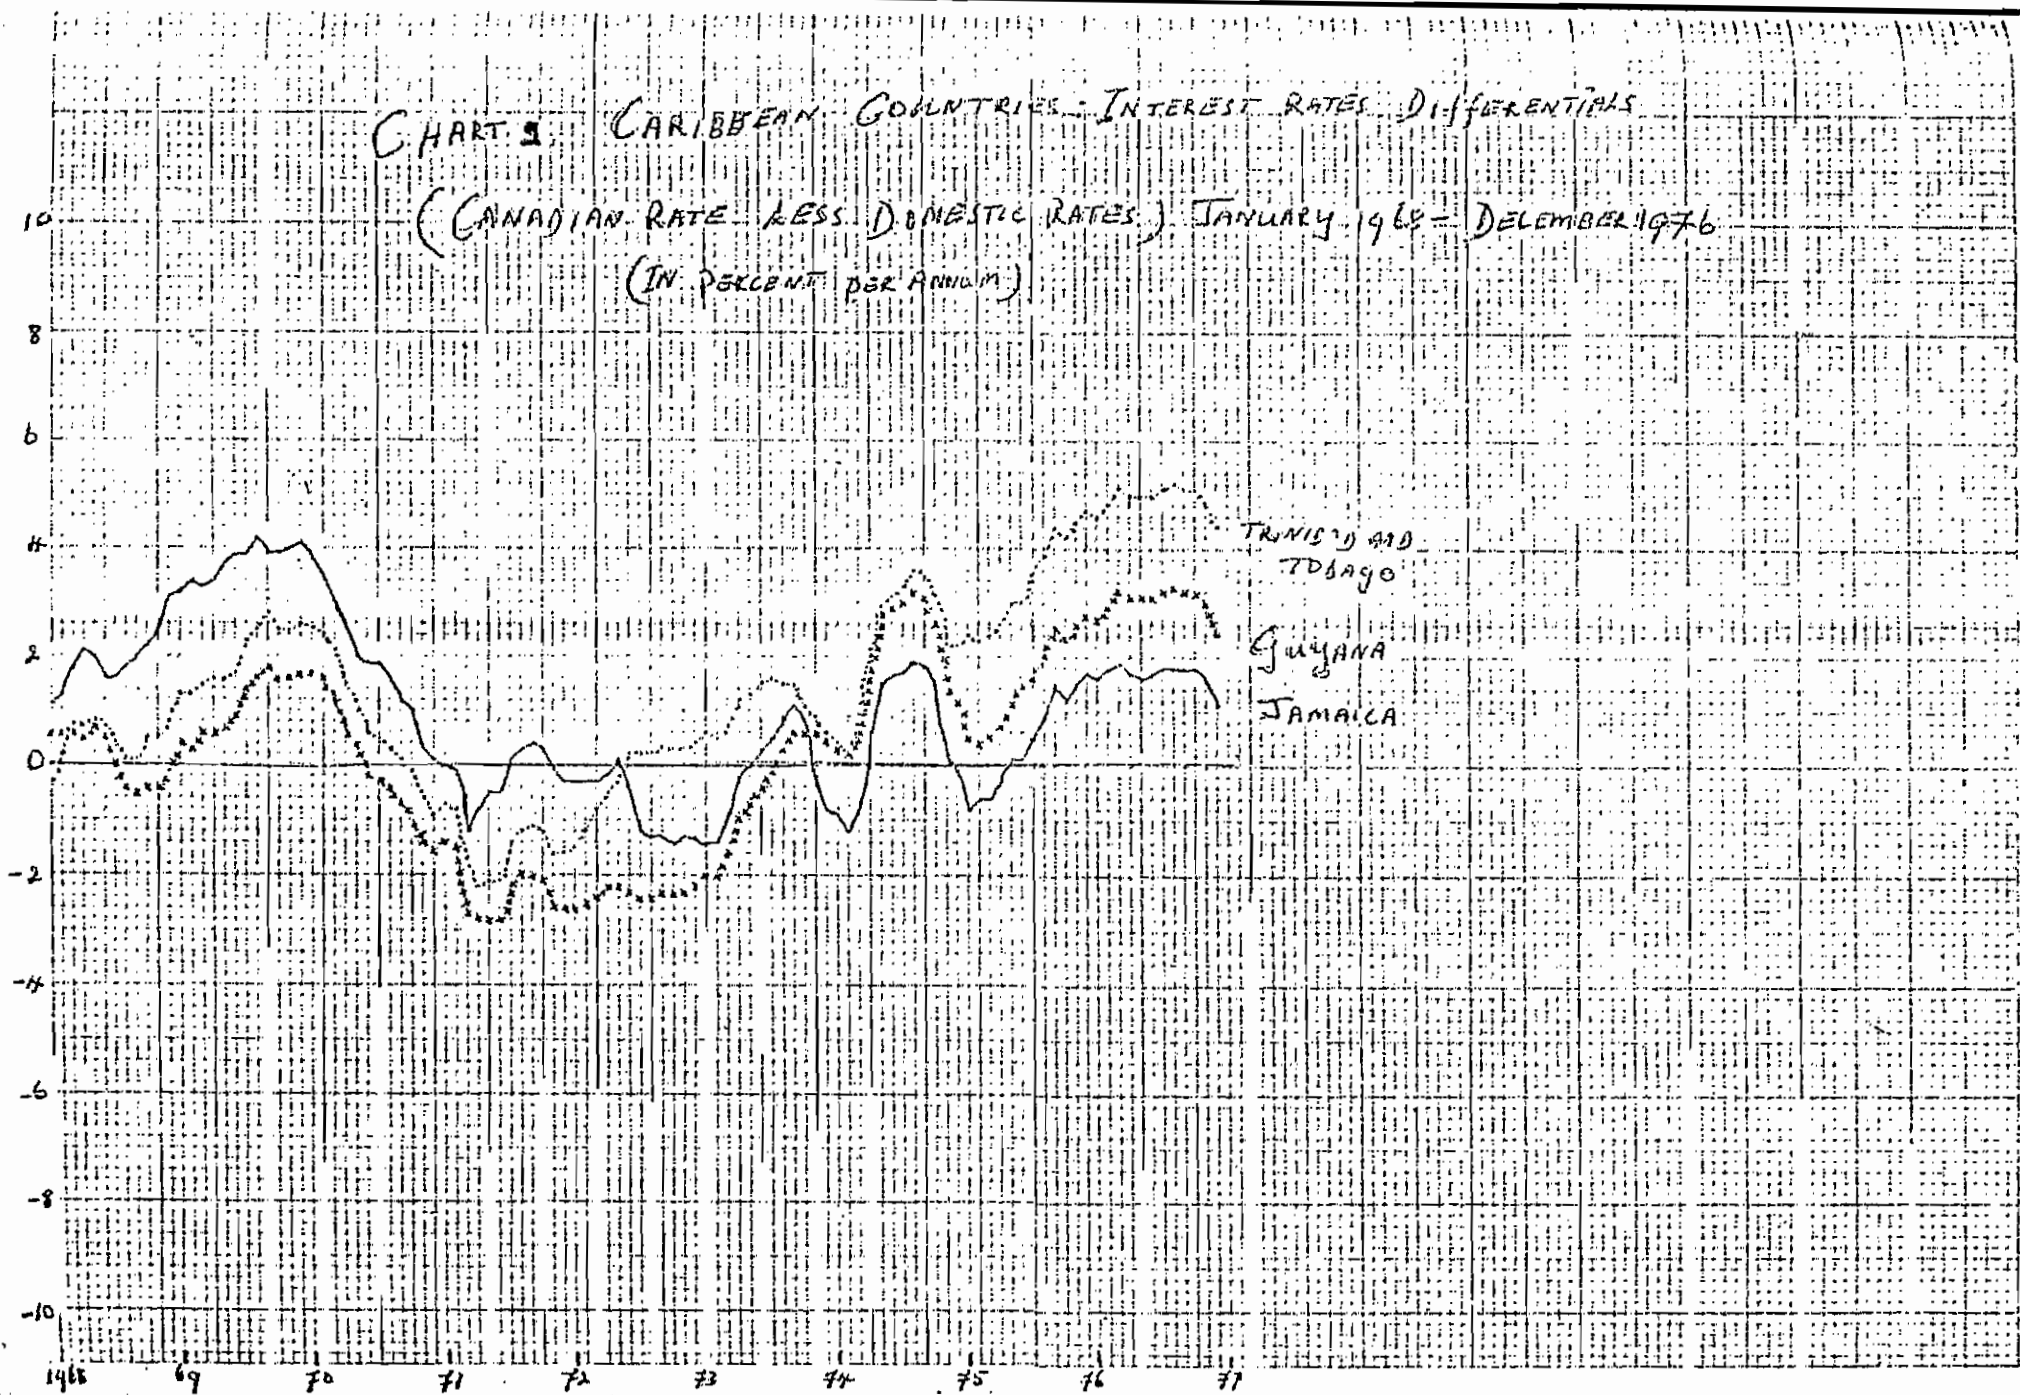 CHART 9 CARIBBEAN COUNTRIES: INTEREST RATES DIFFERENTIALS
(CANADIAN RATE LESS DOMESTIC RATES) JANUARY 1968 - DECEMBER 1976
(IN PERCENT PER ANNUM)
10
8
6
4
2
0
-2
-4
-6
-8
-10
TRINIDAD AND
TOBAGO
GUYANA
JAMAICA
1968 69 70 71 72 73 74 75 76 77